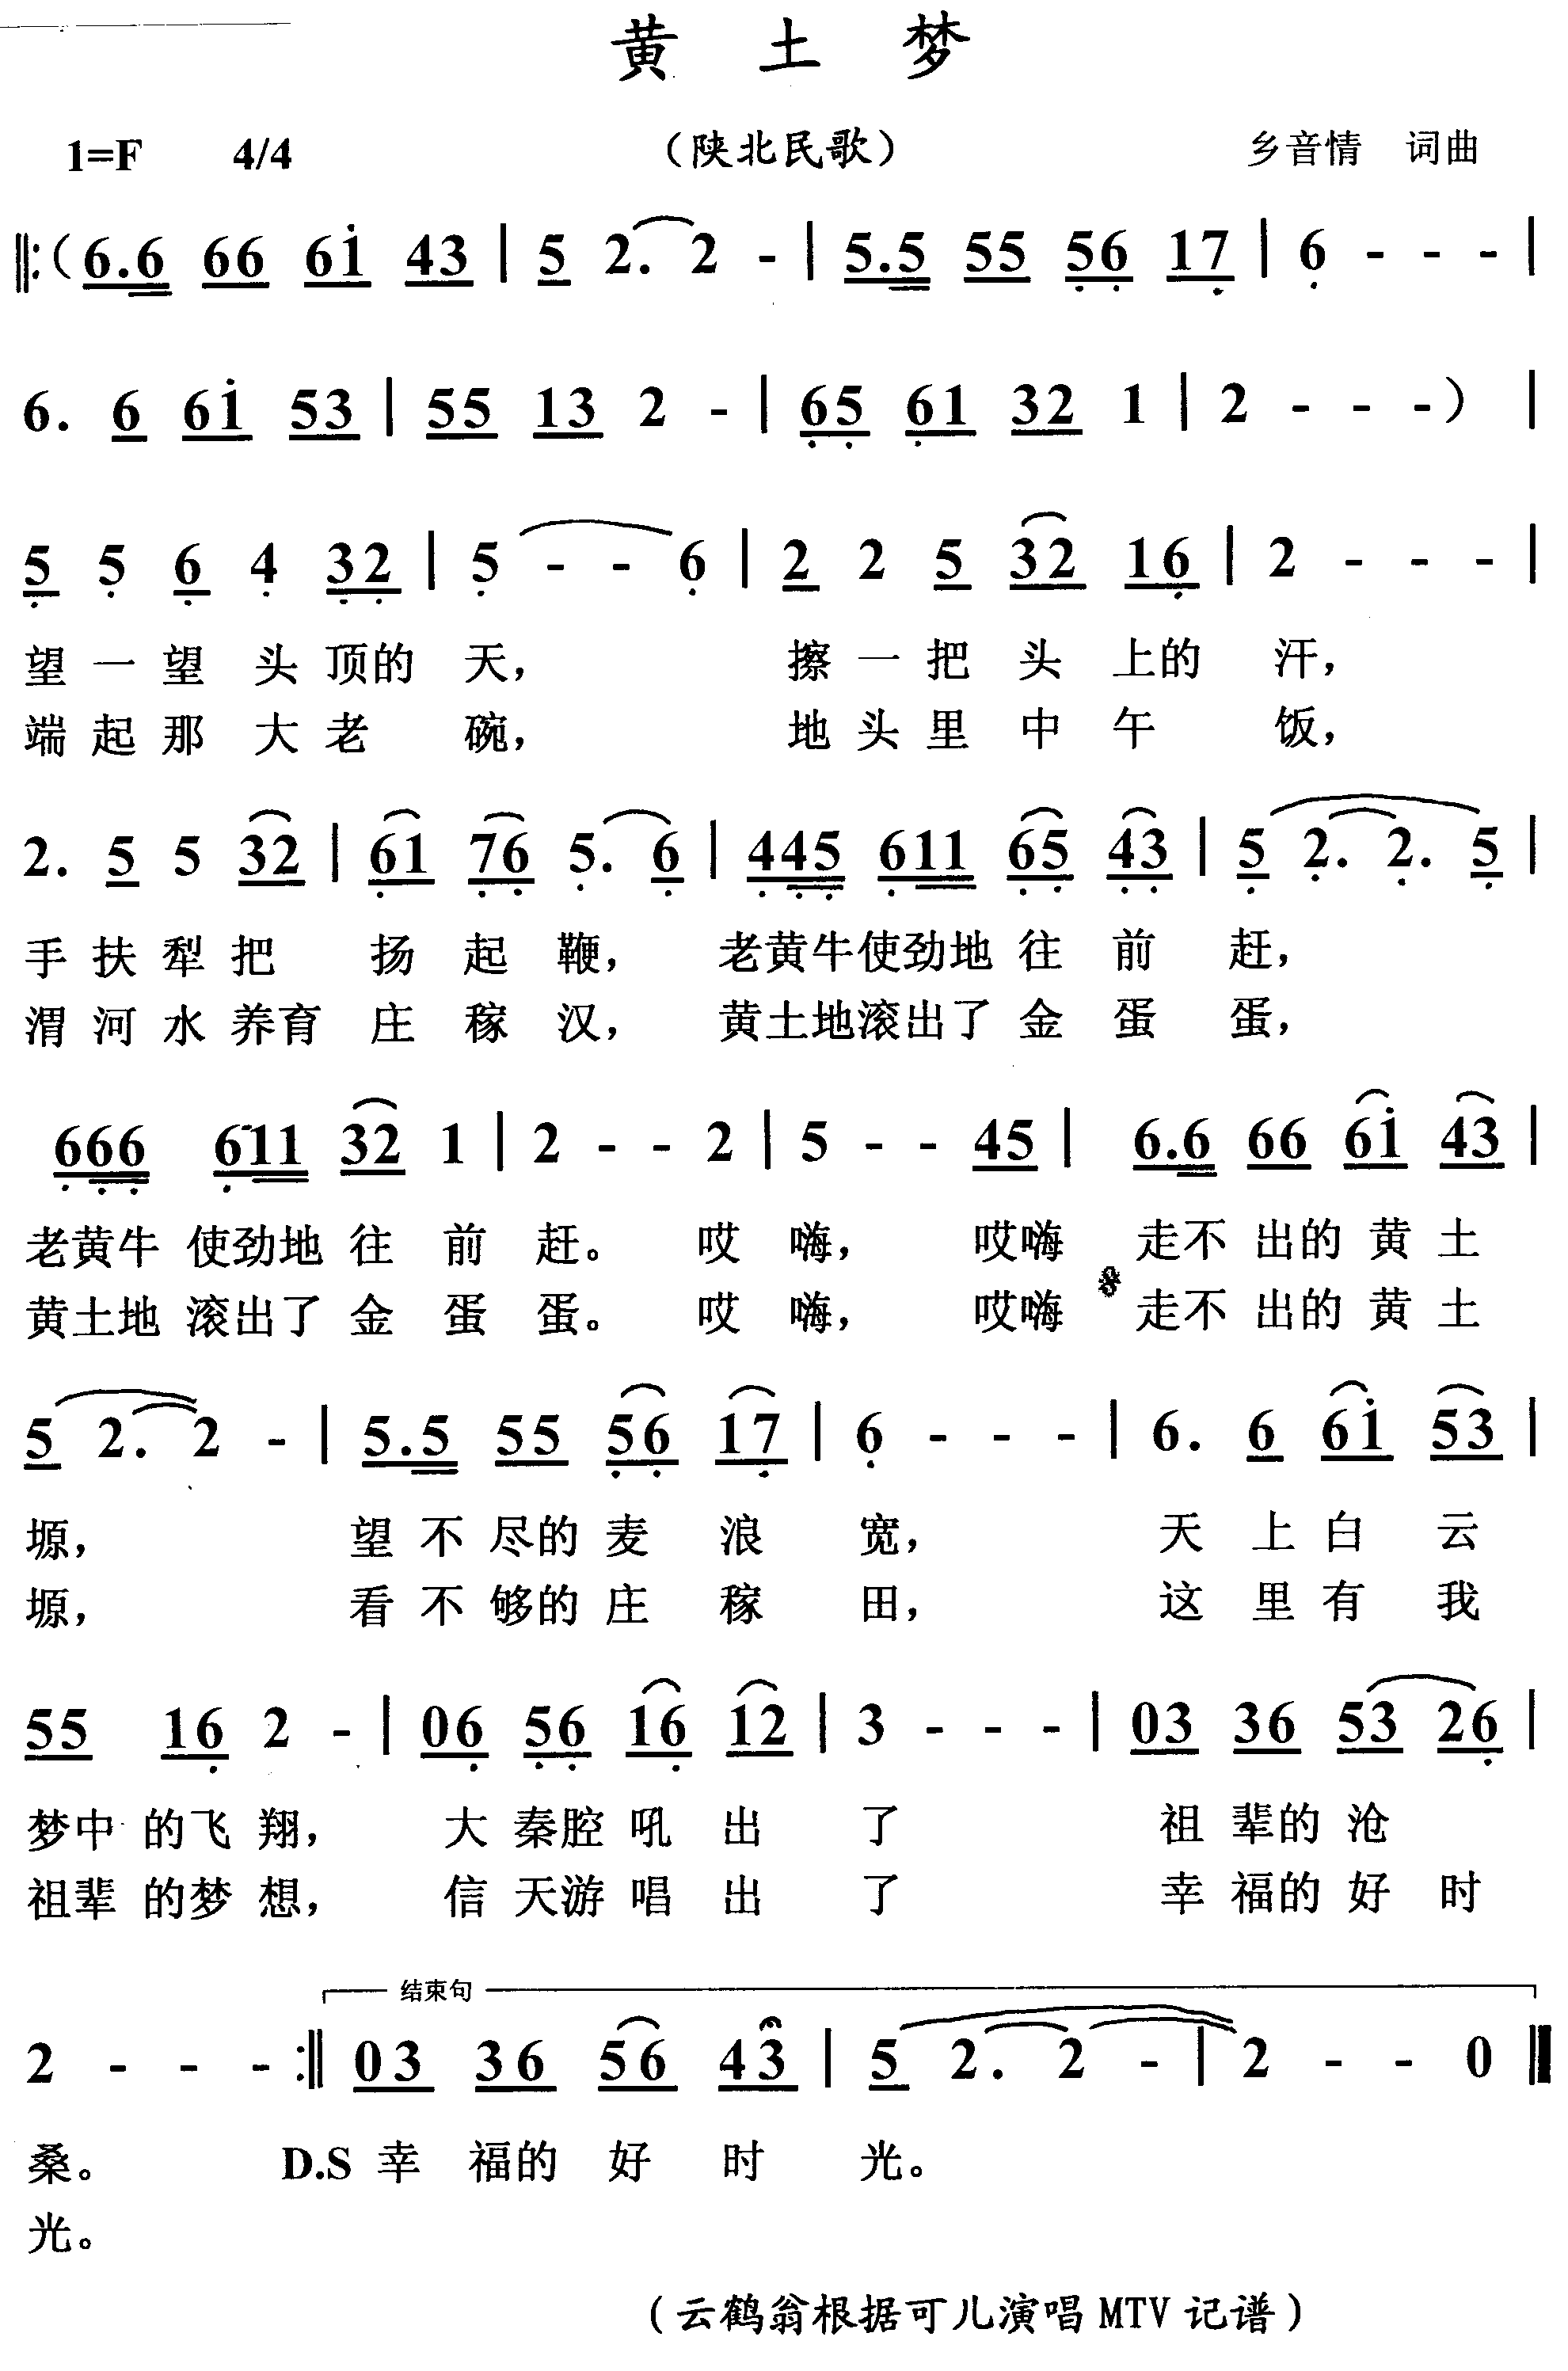 黄 土 梦
1=F 4/4 （陕北民歌） 乡音情 词曲
‖:（6.6 66 6i 43 | 5 2. 2 - | 5.5 55 56 17 | 6 - - - |
6. 6 6i 53 | 55 13 2 - | 65 61 32 1 | 2 - - -） |
5 5 6 4 32 | 5 - - 6 | 2 2 5 32 16 | 2 - - - |
望 一 望 头 顶的 天， 擦 一 把 头 上的 汗，
端 起 那 大 老 碗， 地 头 里 中 午 饭，
2. 5 5 32 | 61 76 5. 6 | 445 611 65 43 | 5 2. 2. 5 |
手 扶 犁 把 扬 起 鞭， 老黄牛使劲地 往 前 赶，
渭 河 水 养育 庄 稼 汉， 黄土地滚出了 金 蛋 蛋，
666 611 32 1 | 2 - - 2 | 5 - - 45 | 6.6 66 6i 43 |
老黄牛 使劲地 往 前 赶。 哎 嗨， 哎嗨 走不 出的 黄 土
黄土地 滚出了 金 蛋 蛋。 哎 嗨， 哎嗨 𝄋 走不 出的 黄 土
5 2. 2 - | 5.5 55 56 17 | 6 - - - | 6. 6 6i 53 |
塬， 望 不 尽的 麦 浪 宽， 天 上 白 云
塬， 看 不 够的 庄 稼 田， 这 里 有 我
55 16 2 - | 06 56 16 12 | 3 - - - | 03 36 53 26 |
梦中 的飞 翔， 大 秦腔 吼 出 了 祖 辈的 沧
祖辈 的梦 想， 信 天游 唱 出 了 幸 福的 好 时
结束句
2 - - - :‖ 03 36 56 43 | 5 2. 2 - | 2 - - 0 ‖
桑。 D.S 幸 福的 好 时 光。
光。
（云鹤翁根据可儿演唱MTV记谱）